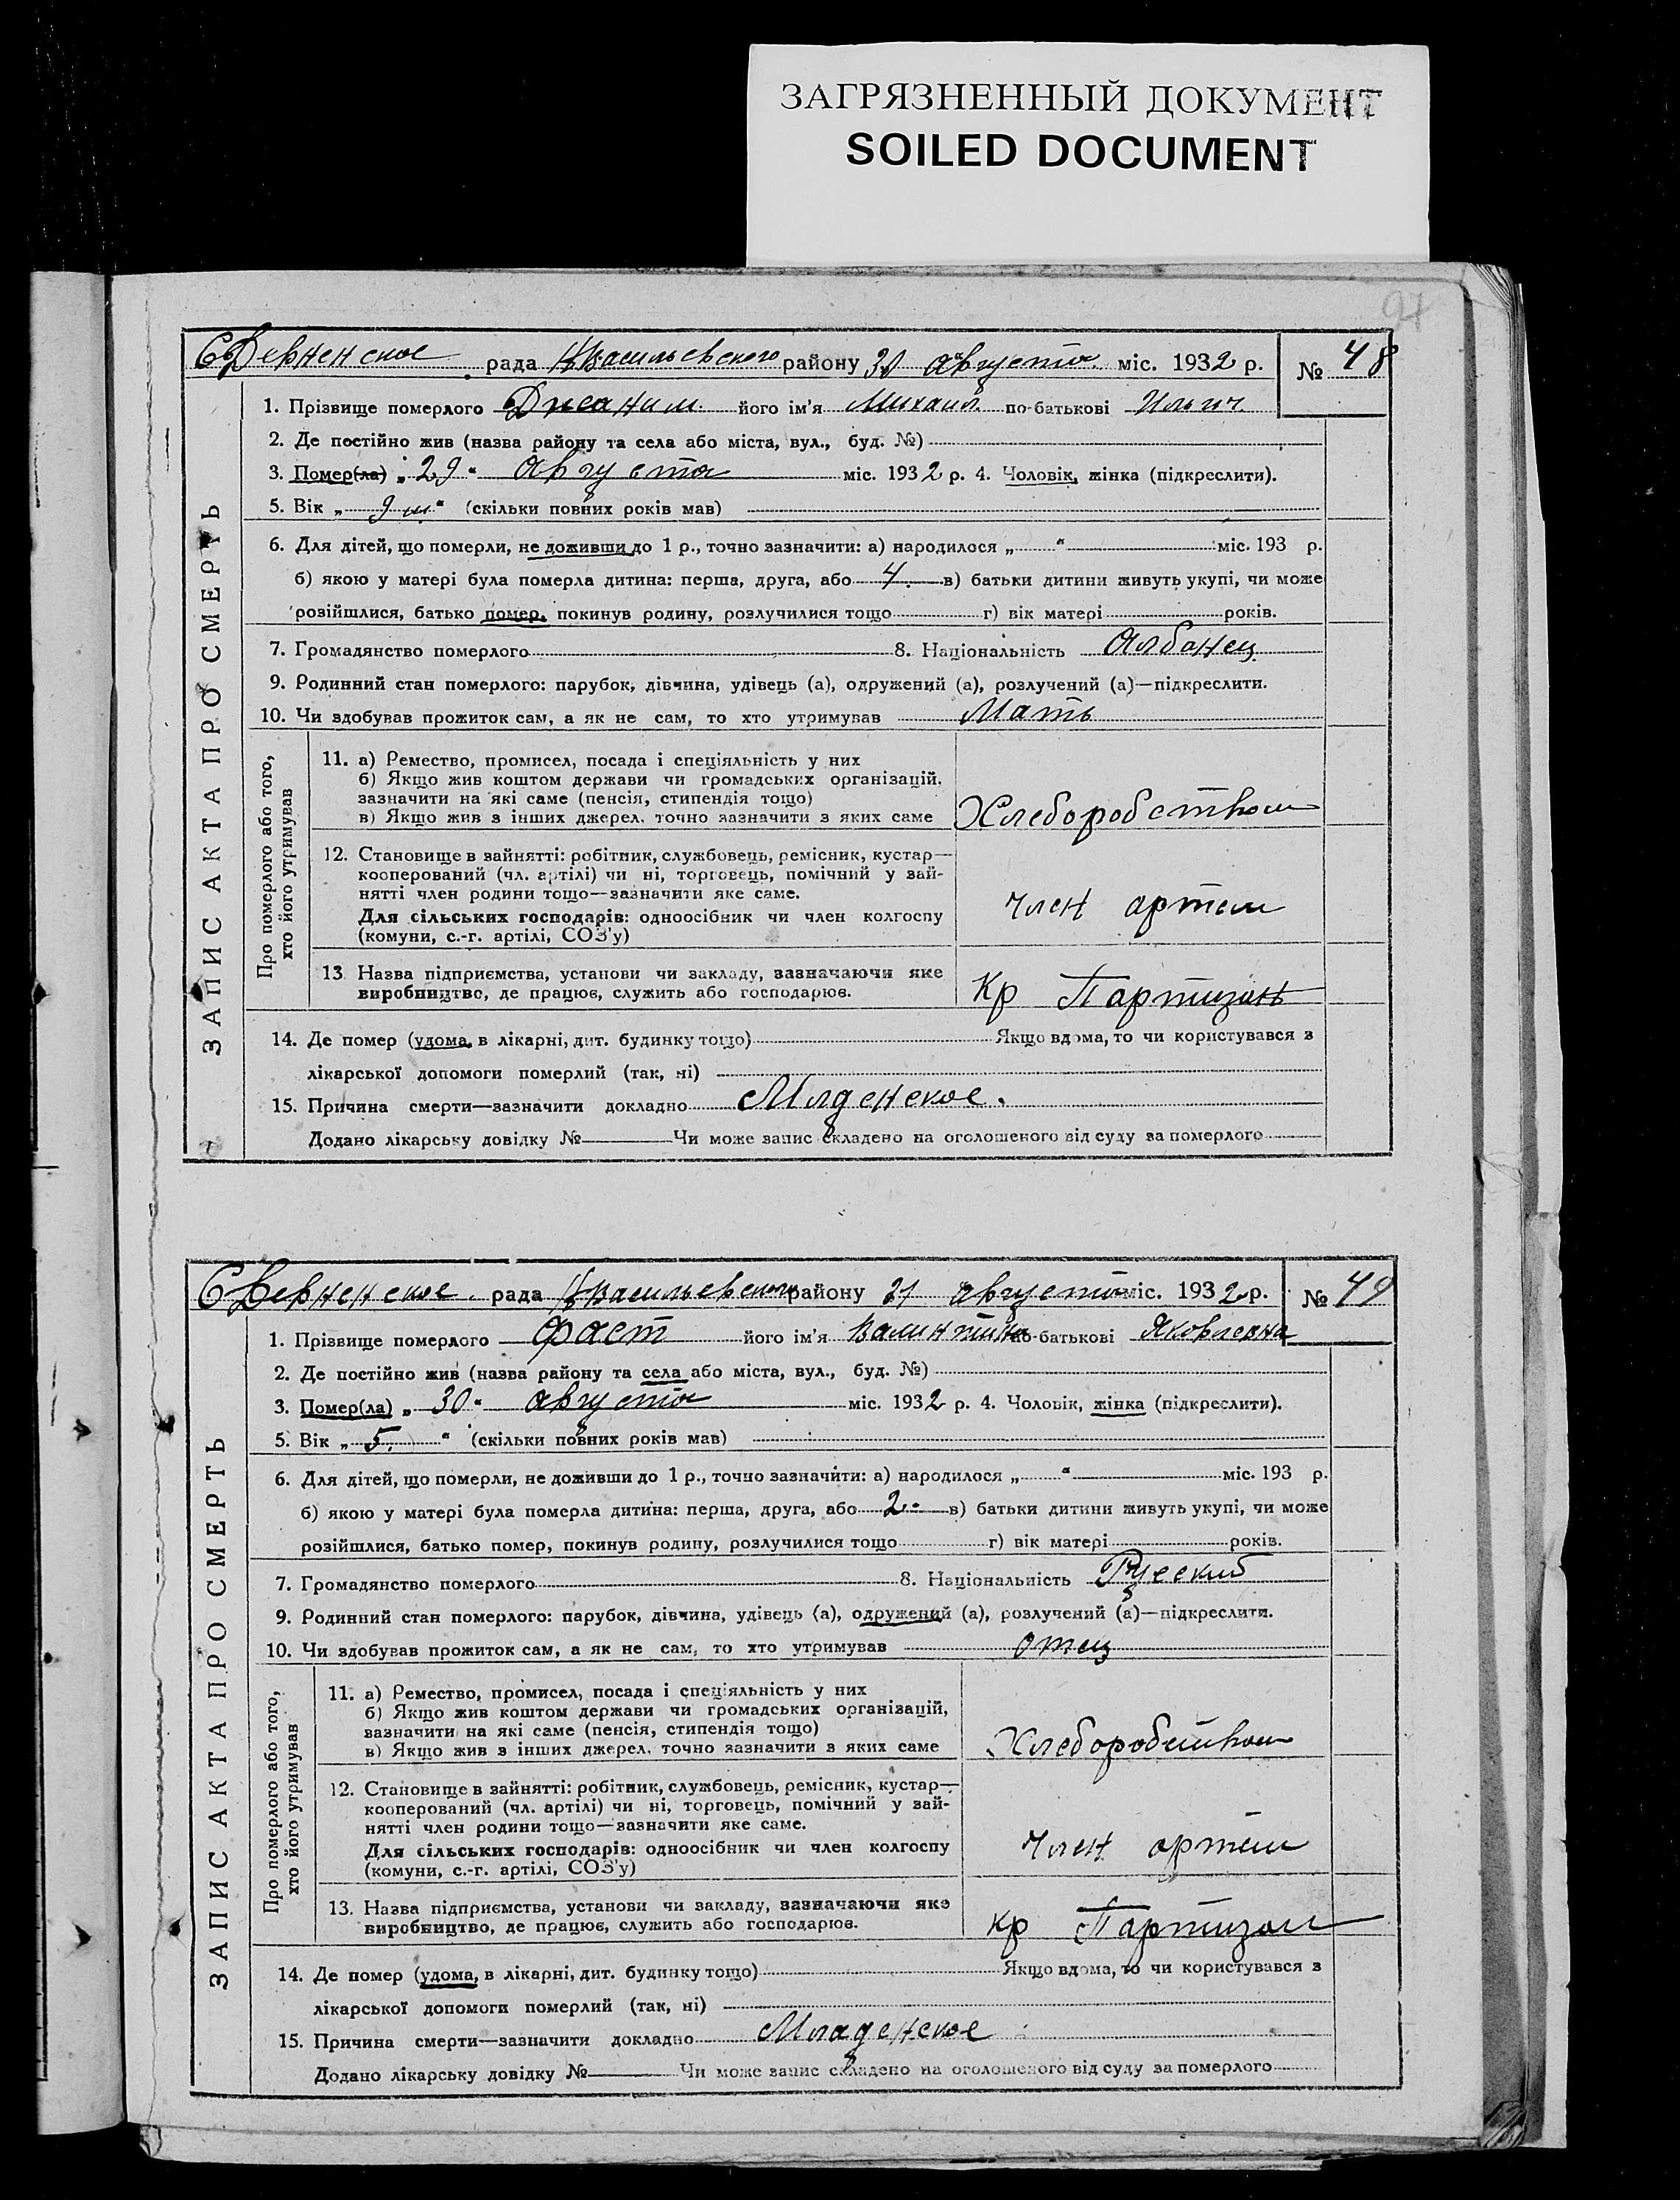 ЗАГРЯЗНЕННЫЙ ДОКУМЕНТ
SOILED DOCUMENT
97
ЗАПИС АКТА ПРО СМЕРТЬ
Девненское рада Нвасильевского району 30 августа міс. 1932 р. № 48
1. Прізвище померлого Джаным його ім'я Михаил по-батькові Ильич.
2. Де постійно жив (назва району та села або міста, вул., буд. №)
3. Помер(ла) „ 29 “ августа міс. 1932 р. 4. Чоловік, жінка (підкреслити).
5. Вік „ 9 м “ (скільки повних років мав)
6. Для дітей, що померли, не доживши до 1 р., точно зазначити: а) народилося „ “ міс. 193 р.
б) якою у матері була померла дитина: перша, друга, або 4. в) батьки дитини живуть укупі, чи може
розійшлися, батько помер, покинув родину, розлучилися тощо г) вік матері років.
7. Громадянство померлого 8. Національність Албанец
9. Родинний стан померлого: парубок, дівчина, удівець (а), одружений (а), розлучений (а)—підкреслити.
10. Чи здобував прожиток сам, а як не сам, то хто утримував Мать
Про померлого або того, хто його утримував
11. а) Ремество, промисел, посада і спеціяльність у них
б) Якщо жив коштом держави чи громадських організацій,
зазначити на які саме (пенсія, стипендія тощо)
в) Якщо жив з інших джерел, точно зазначити з яких саме Хлеборобством
12. Становище в зайнятті: робітник, службовець, ремісник, кустар—
кооперований (чл. артілі) чи ні, торговець, помічний у зай-
нятті член родини тощо—зазначити яке саме.
Для сільських господарів: одноосібник чи член колгоспу член артели
(комуни, с.-г. артілі, СОЗ'у)
13. Назва підприємства, установи чи закладу, зазначаючи яке
виробництво, де працює, служить або господарює. Кр Партизан
14. Де помер (удома, в лікарні, дит. будинку тощо) Якщо вдома, то чи користувався з
лікарської допомоги померлий (так, ні)
15. Причина смерти—зазначити докладно Младенское.
Додано лікарську довідку № Чи може запис складено на оголошеного від суду за померлого
ЗАПИС АКТА ПРО СМЕРТЬ
Девненское рада Нвасильевского району 31 августа міс. 1932 р. № 49
1. Прізвище померлого Фаст його ім'я Валинтина по-батькові Яковлевна
2. Де постійно жив (назва району та села або міста, вул., буд. №)
3. Помер(ла) „ 30 “ августа міс. 1932 р. 4. Чоловік, жінка (підкреслити).
5. Вік „ 5. “ (скільки повних років мав)
6. Для дітей, що померли, не доживши до 1 р., точно зазначити: а) народилося „ “ міс. 193 р.
б) якою у матері була померла дитина: перша, друга, або 2. в) батьки дитини живуть укупі, чи може
розійшлися, батько помер, покинув родину, розлучилися тощо г) вік матері років.
7. Громадянство померлого 8. Національність Руский
9. Родинний стан померлого: парубок, дівчина, удівець (а), одружений (а), розлучений (а)—підкреслити.
10. Чи здобував прожиток сам, а як не сам, то хто утримував отец
Про померлого або того, хто його утримував
11. а) Ремество, промисел, посада і спеціяльність у них
б) Якщо жив коштом держави чи громадських організацій,
зазначити на які саме (пенсія, стипендія тощо)
в) Якщо жив з інших джерел, точно зазначити з яких саме Хлеборобством
12. Становище в зайнятті: робітник, службовець, ремісник, кустар—
кооперований (чл. артілі) чи ні, торговець, помічний у зай-
нятті член родини тощо—зазначити яке саме.
Для сільських господарів: одноосібник чи член колгоспу член артели
(комуни, с.-г. артілі, СОЗ'у)
13. Назва підприємства, установи чи закладу, зазначаючи яке
виробництво, де працює, служить або господарює. Кр Партизан
14. Де помер (удома, в лікарні, дит. будинку тощо) Якщо вдома, то чи користувався з
лікарської допомоги померлий (так, ні)
15. Причина смерти—зазначити докладно Младенское
Додано лікарську довідку № Чи може запис складено на оголошеного від суду за померлого